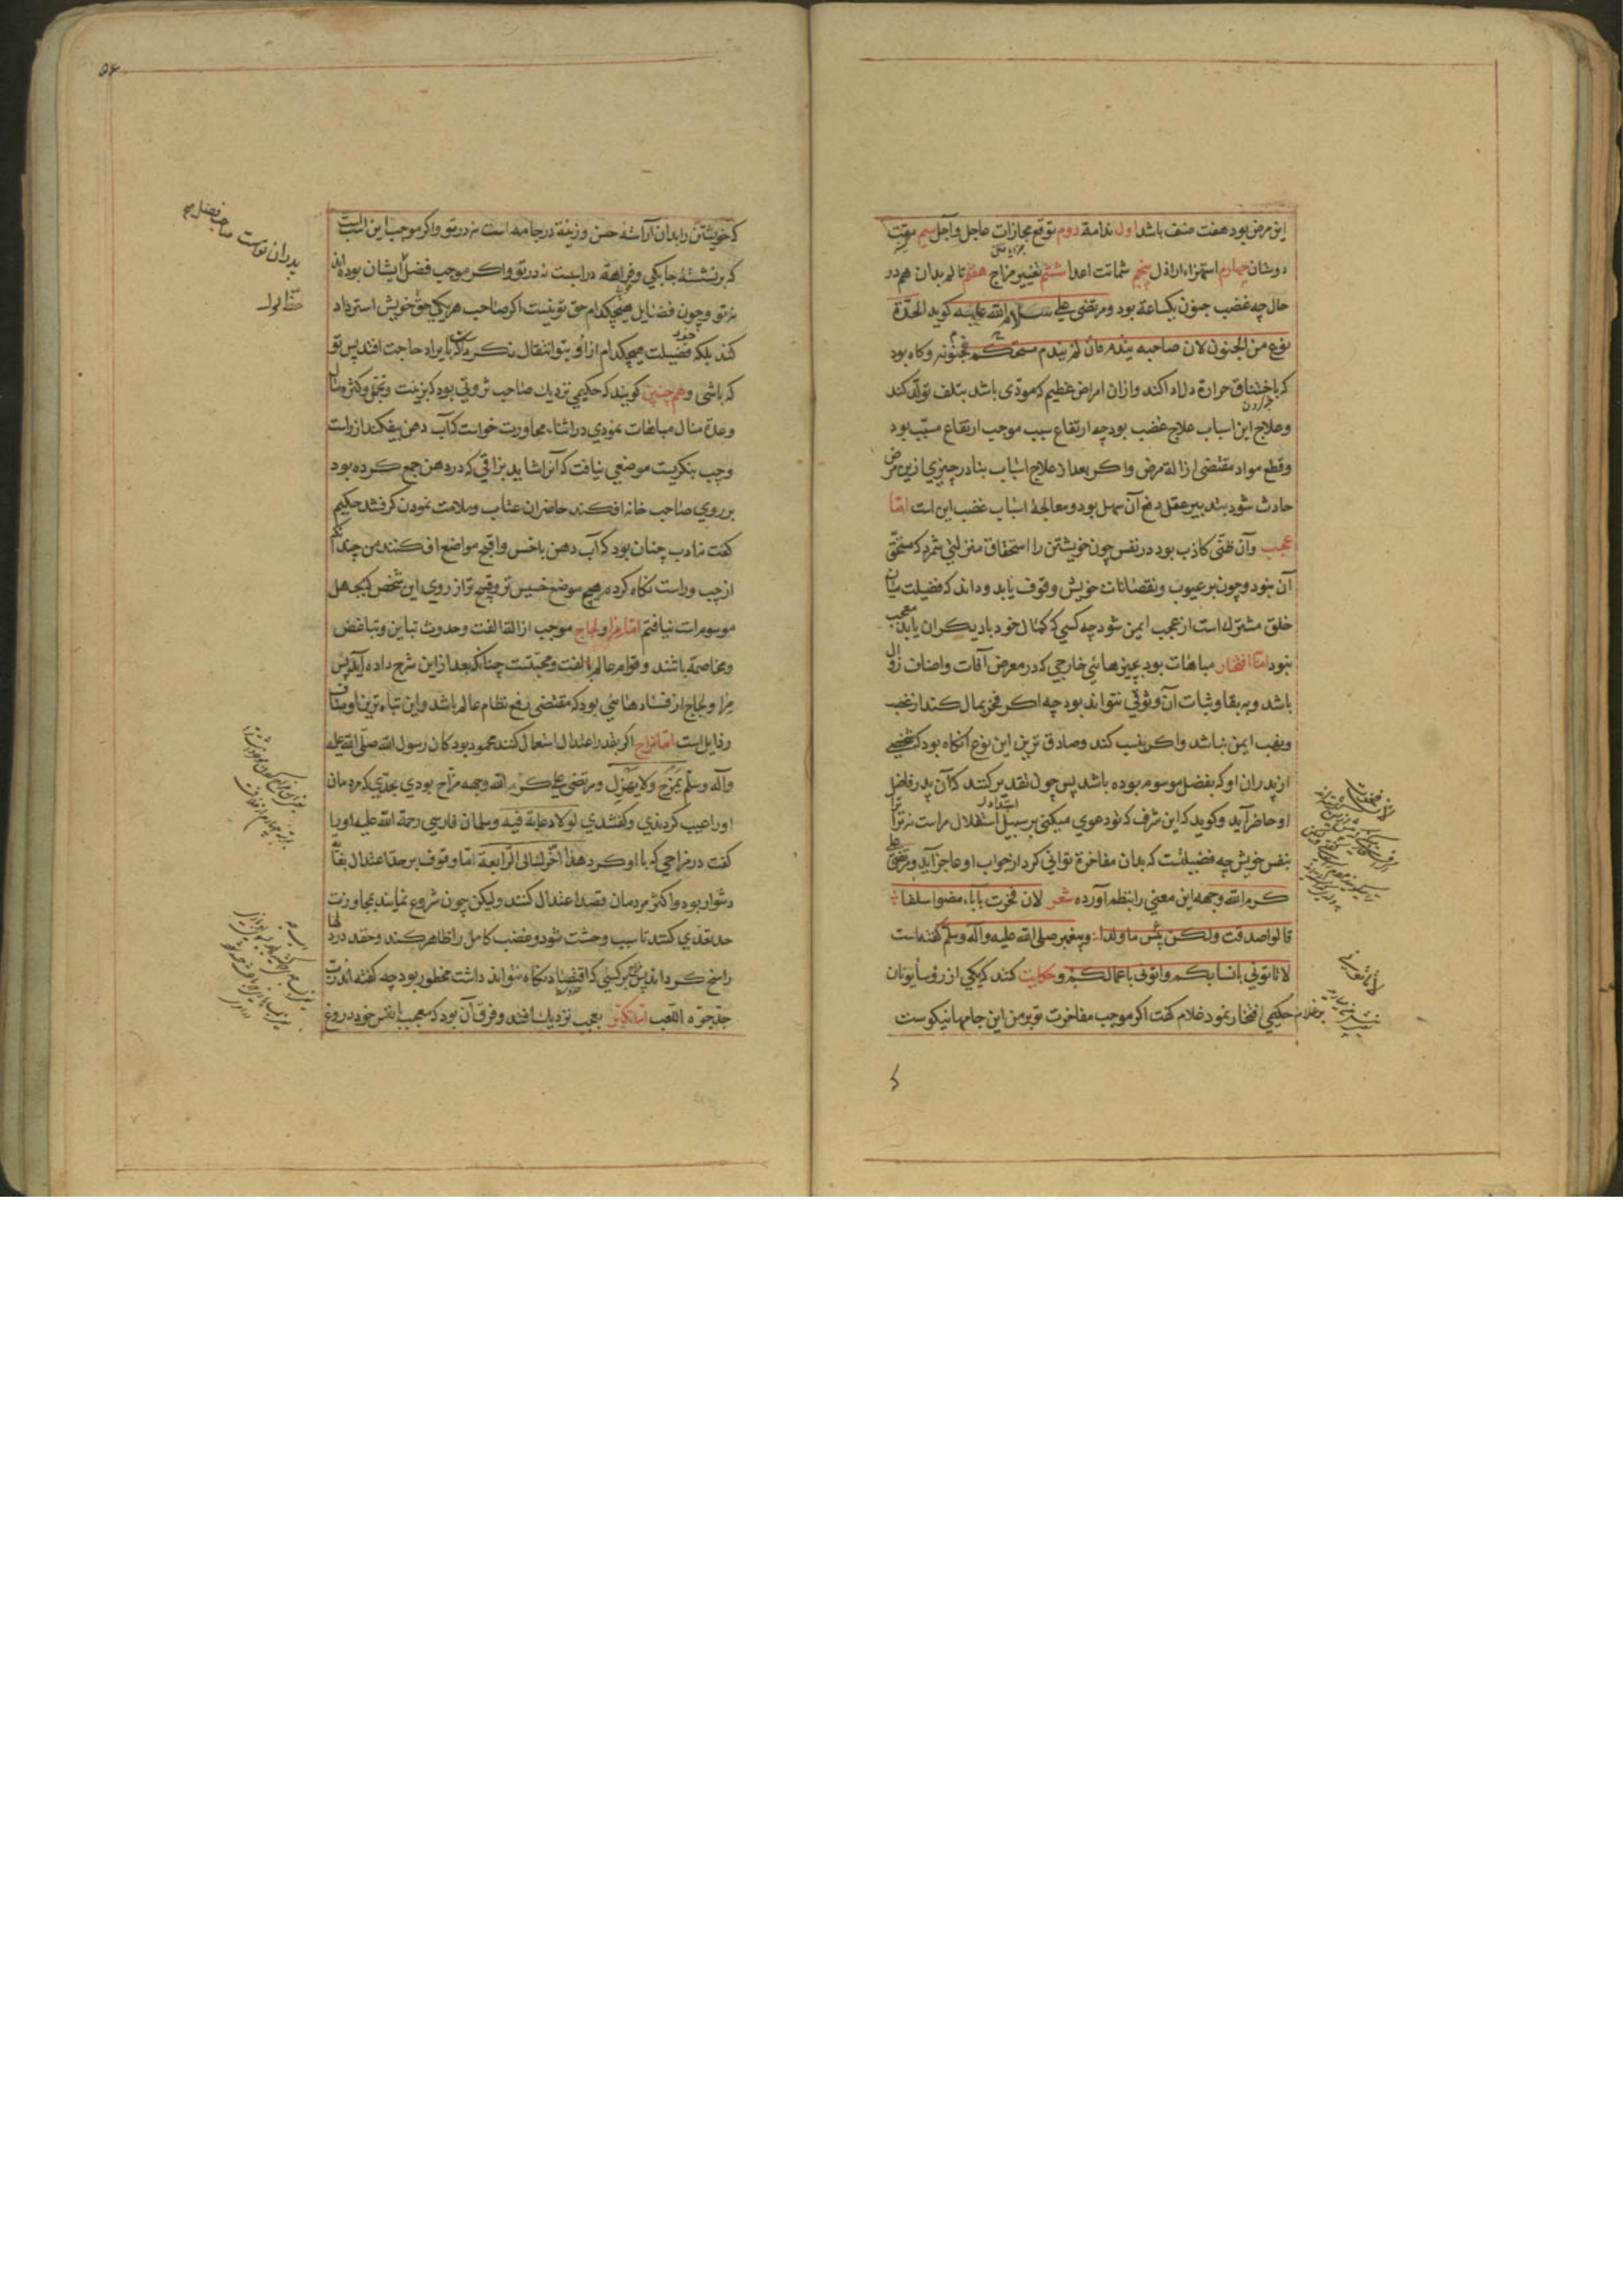 این مرض بود هفت صنف باشد اول ندامة دوم توقع مجازات عاجل وآجل سیم مقت
دوستان چهارم استهزاء اراذل پنجم شماتت اعدا ششم تغییر مزاج هفتم تالم بدان هم در
حال چه غضب جنون یکساعة بود ومرتضی علی سلام الله علیه کوید الحدّة
نوع من الجنون لان صاحبه یندم فان لم یندم فجنونه مستحکم وکاه بود
که باختناق حرارة دل ادا کند وازان امراض عظیم که مودّی باشد بتلف تولّد کند
وعلاج این اسباب علاج غضب بود چه ارتفاع سبب موجب ارتفاع مسبّب بود
وقطع مواد مقتضی ازالة مرض واکر بعد از علاج اسباب بنادر چیزی ازین مرض
حادث شود بتدبیر عقل دفع آن سهل بود ومعالجهٔ اسباب غضب این است امّا
عجب وآن ظنّی کاذب بود در نفس چون خویشتن را استحقاق منزلتی شمرد که مستحقّ
آن نبود وچون بر عیوب ونقصانات خویش وقوف یابد وداند که فضیلت میان
خلق مشترک است از عجب ایمن شود چه کسی که کمال خود با دیکران یابد معجب
نبود امّا افتخار مباهات بود بچیزهائی خارجی که در معرض آفات واصناف زوال
باشد وبه بقا وثبات آن وثوقی نتواند بود چه اکر فخر بمال کند از غصب
ونهب ایمن نباشد واکر بنسب کند وصادق ترین این نوع آنکاه بود که شخصی
از پدران او که بفضل موسوم بوده باشد پس چون تقدیر کنند که آن پدر فاضل
او حاضر آید وکوید که این شرف که تو دعوی میکنی بر سبیل استقلال مراست نه ترا
بنفس خویش چه فضیلتست که بدان مفاخرة توانی کرد از جواب او عاجز آید ومرتضی علی
کرم الله وجهه این معنی را بنظم آورده شعر لان فخرت بآباء مضوا سلفا
قالوا صدقت ولکن بئس ما ولدا وپیغمبر صلی الله علیه وآله وسلم کفته است
لا تاتونی بانسابکم واتونی باعمالکم وحکایت کنند که یکی از رؤسا یونان
بر غلام حکیمی افتخار نمود غلام کفت اکر موجب مفاخرت تو بر من این جامهای نیکوست
که خویشتن را بدان آراستهٔ حسن وزینة در جامه است نه در تو واکر موجب این اسب است
که بر نشستهٔ چابکی وفراهة در اسبست نه در تو واکر موجب فضل ایشان بوده اند
نه تو وچون فضایل هیچکدام حق تو نیست اکر صاحب هر یکی حقّ خویش استرداد
کند بلکه فضیلت هیچکدام از او بتو انتقال نکرد تا بایراد حاجت افتد پس تو
که باشی وهم چنین کویند که حکیمی نزدیک صاحب ثروتی بود که بزینت وتجمّل وکثرة مال
وعدّة منال مباهات نمودی در اثناء محاورت خواست که آب دهن بیفکند از راست
وچپ بنکریست موضعی نیافت که آنرا شاید بزاقی که در دهن جمع کرده بود
بر روی صاحب خانه افکند حاضران عتاب وملامت نمودن کرفتند حکیم
کفت نه ادب چنان بود که آب دهن باخس واقبح مواضع افکنند من چندانکه
از چپ وراست نکاه کردم هیچ موضع خسیس تر وقبیح تر از روی این شخص که بجهل
موسوم است نیافتم امّا مرا ولجاج موجب ازالة الفت وحدوث تباین وتباغض
ومخاصمه باشند وقوام عالم بالفت ومحبّتست چنانکه بعد از این شرح داده آید پس
مرا ولجاج از فسادهائی بود که مقتضی رفع نظام عالم باشد واین تباه ترین اوصاف
رذایل است امّا مزاح اکر بقدر اعتدال استعمال کنند محمود بود کان رسول الله صلّی الله علیه
وآله وسلّم یمزح ولا یهزل ومرتضی علی کرم الله وجهه مزّاح بودی بحدّی که مردمان
او را عیب کردندی وکفتندی لولا دعابة فیه وسلمان فارسی رحمة الله علیه او را
کفت در مزاحی که با او کرد هذا اخّرک الی الرّابعة امّا وقوف بر حدّ اعتدال بغایة
دشوار بود واکثر مردمان قصد اعتدال کنند ولیکن چون شروع نمایند بمجاوزت
حد تعدّی کنند تا سبب وحشت شود وغضب کامل را ظاهر کند وحقد در دلها
راسخ کرداند پس بر کسی که اقتصاد نکاه نتواند داشت محظور بود چه کفته اند ربّ
جدّ جرّه اللّعب امّا تکبّر بعجب نزدیک افتد وفرق آن بود که معجب با نفس خود دروغ